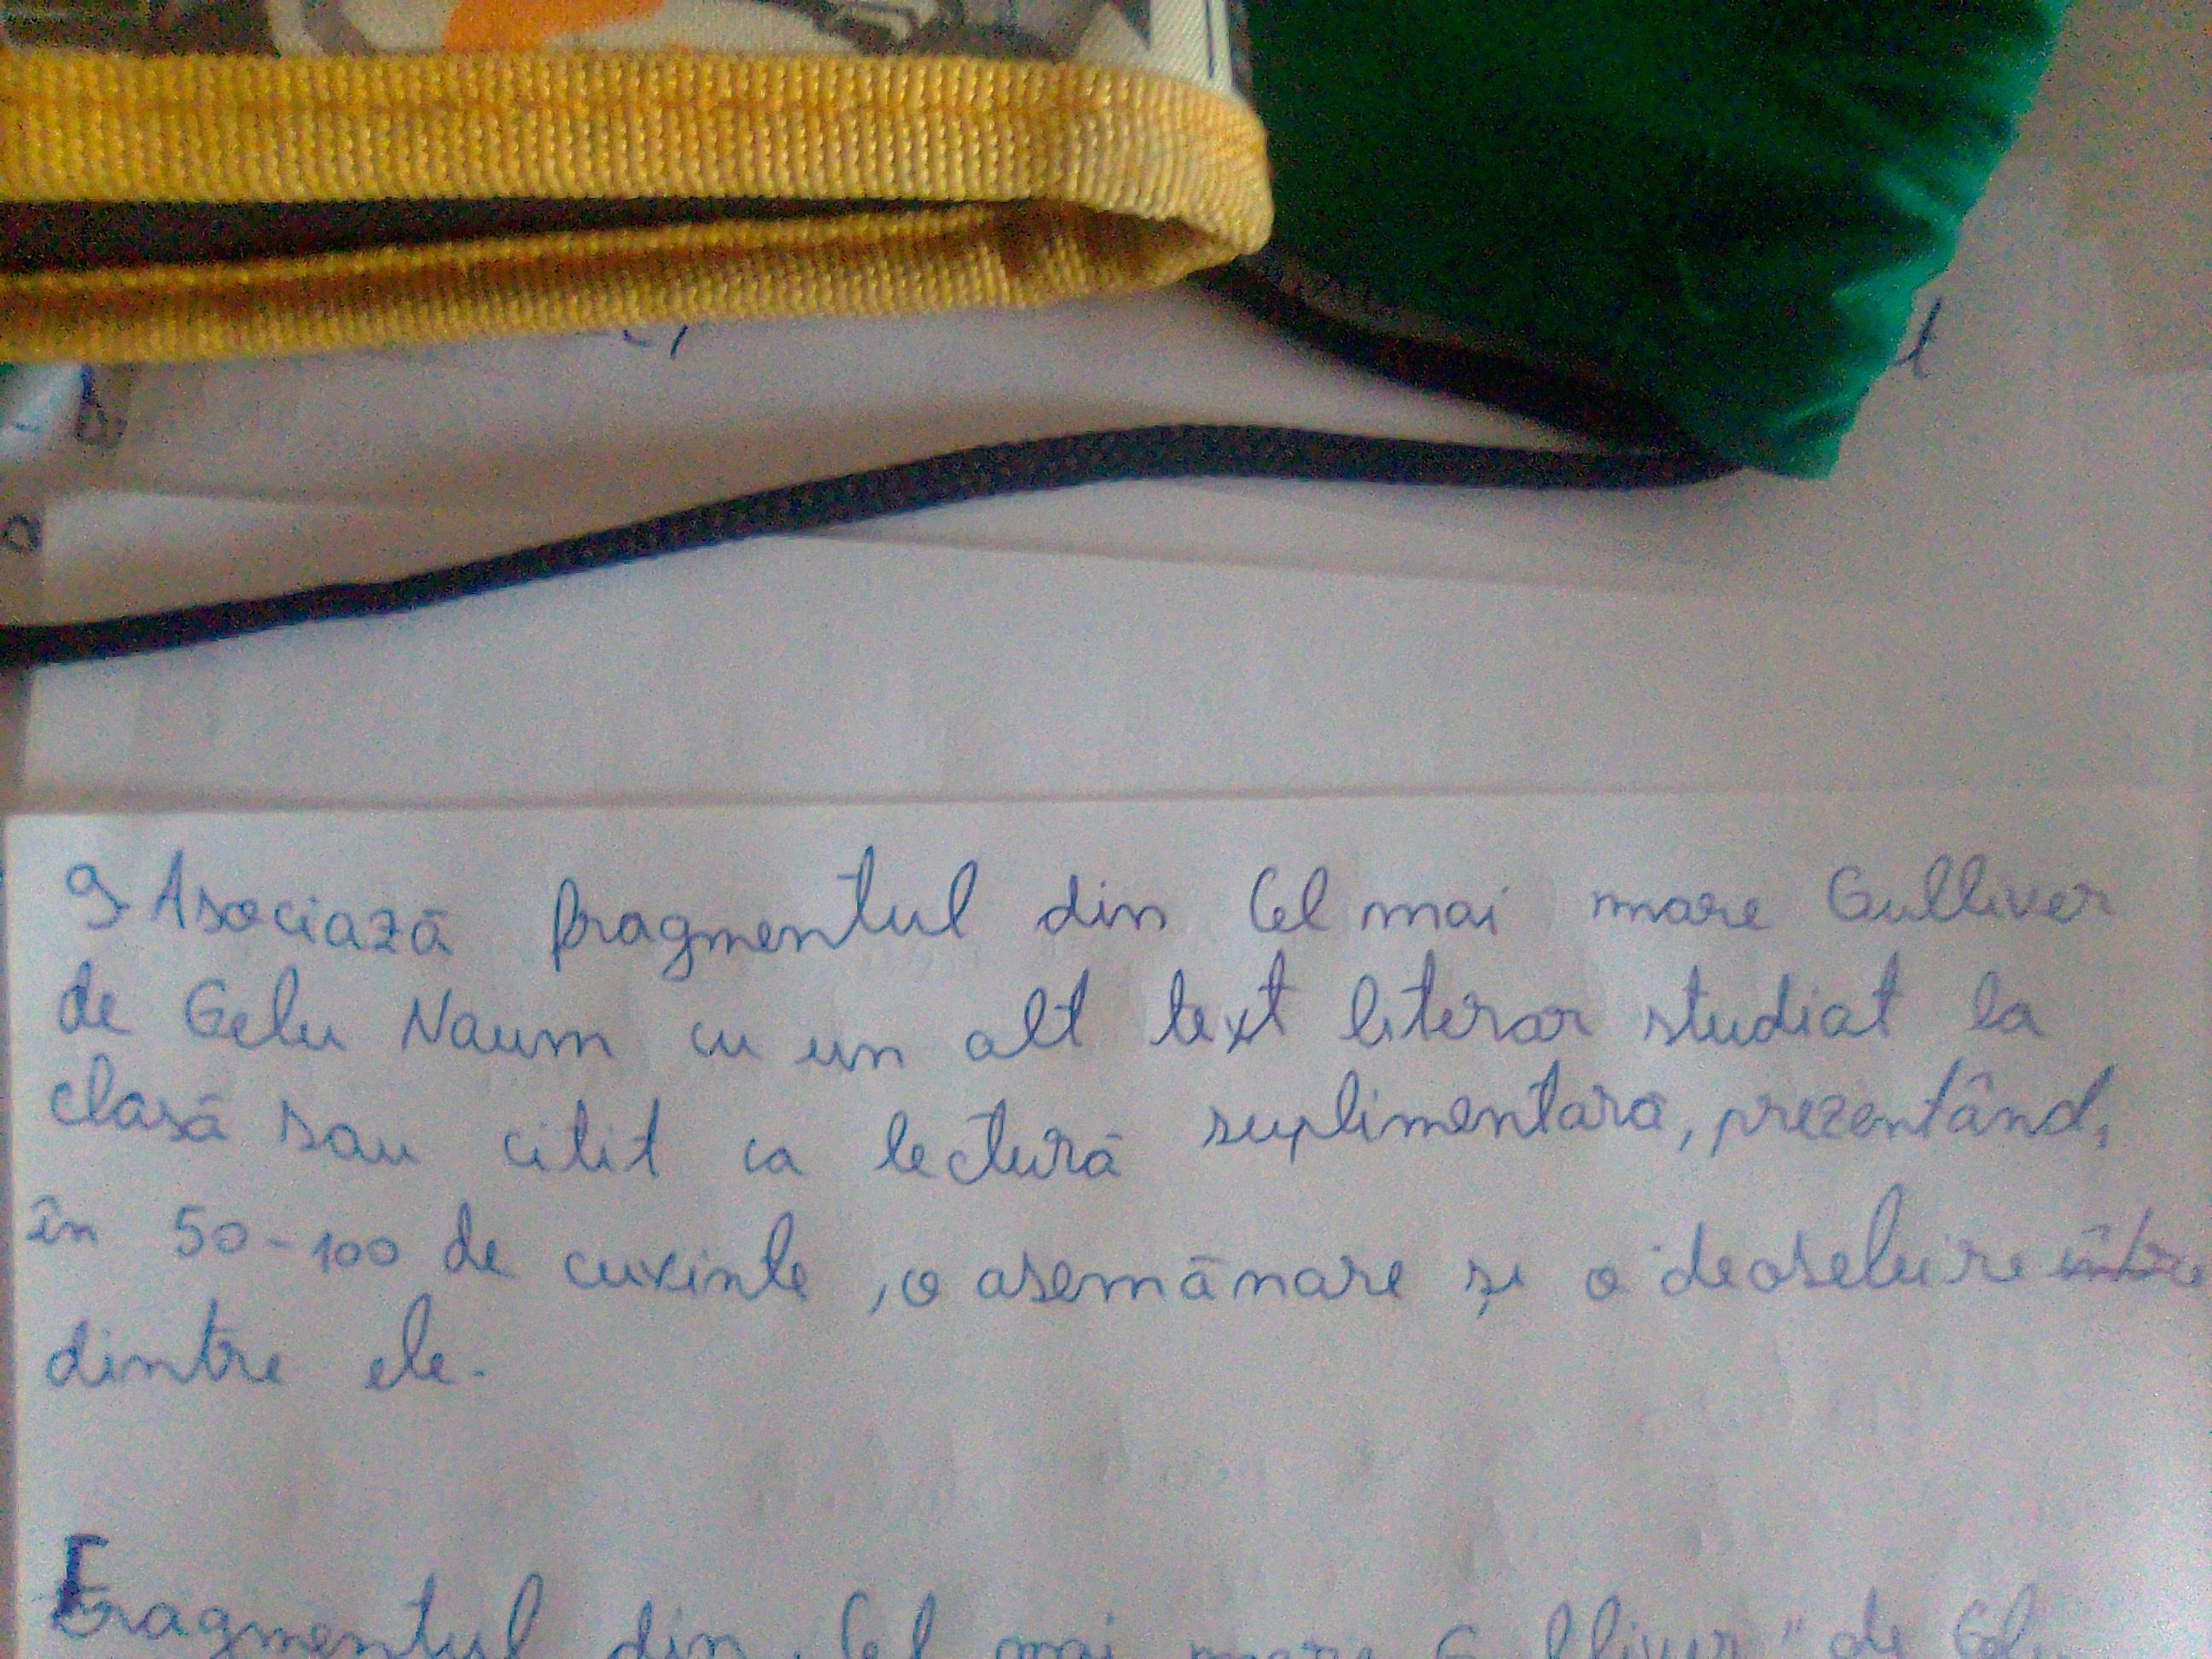 9. Asociază fragmentul din Cel mai mare Gulliver
de Gelu Naum cu un alt text literar studiat la
clasă sau citit ca lectură suplimentară, prezentând,
în 50-100 de cuvinte, o asemănare și o deosebire între
dintre ele.
Fragmentul din „Cel mai mare Gulliver" de Gelu